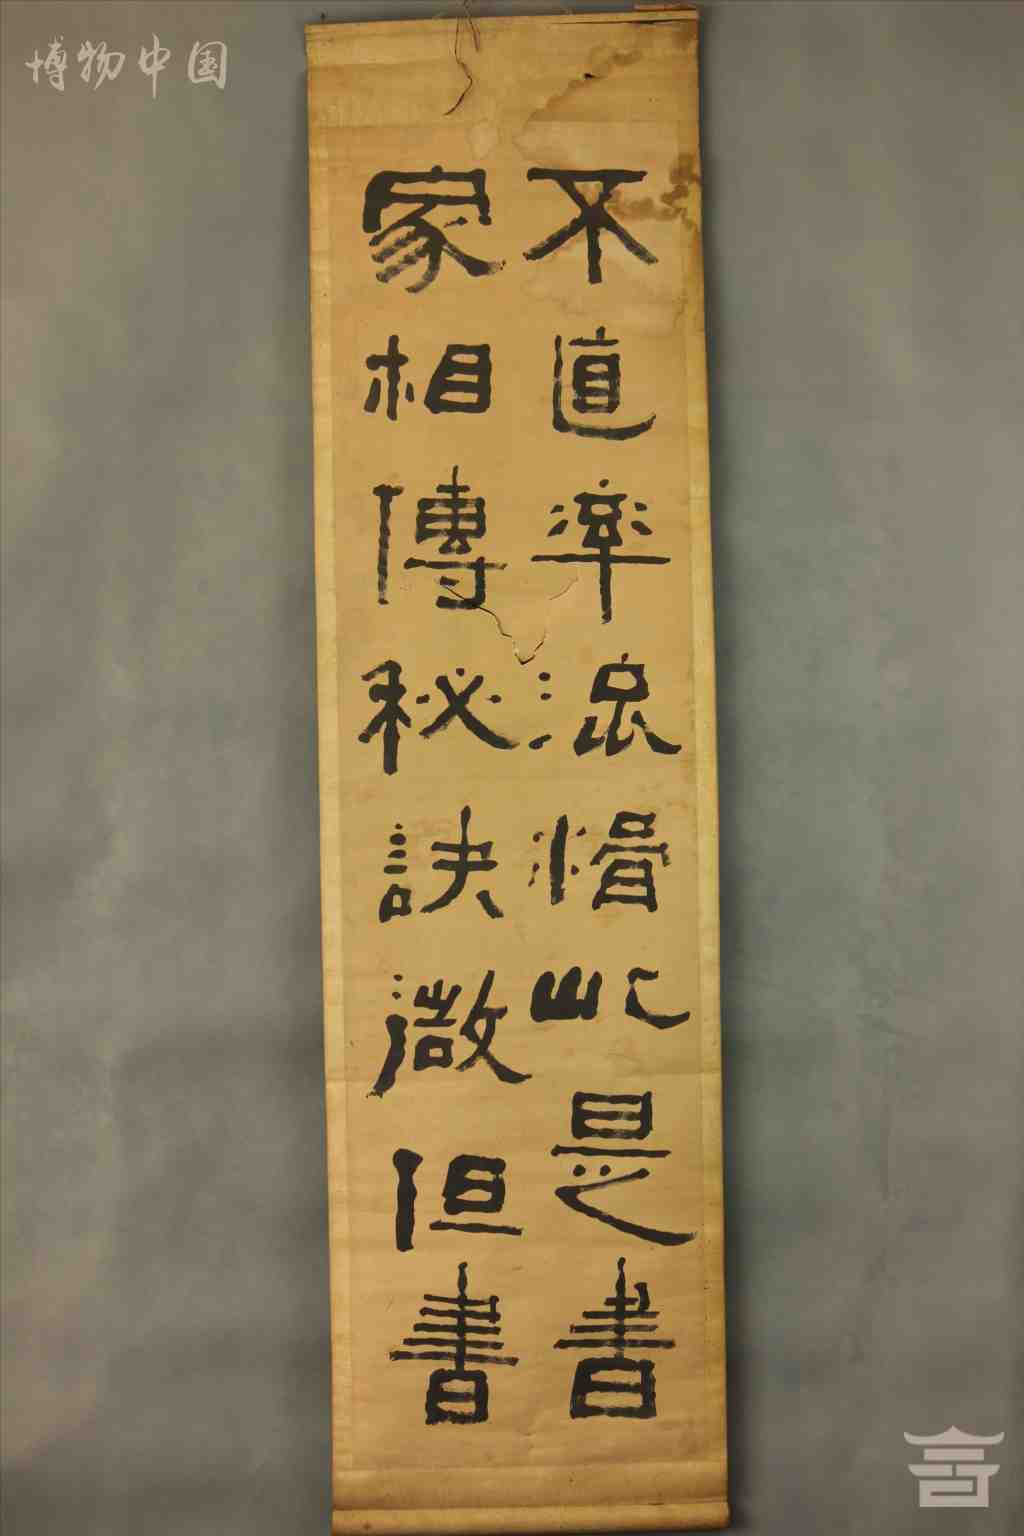 博物中国
不直率流滑此是書
家相傳秘訣微但書